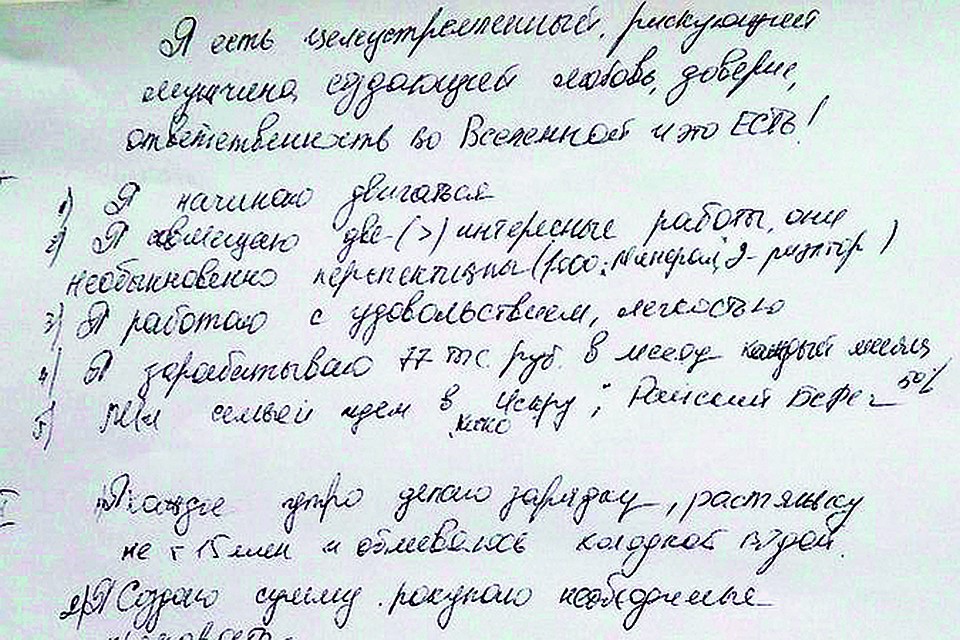 Я есть целеустремленный, рискующий
мужчина, создающий любовь, доверие,
ответственность во Вселенной и это ЕСТЬ!
1) Я начинаю двигаться
2) Я совмещаю две (>) интересные работы, они
необыкновенно перспективны (1000. Минерал, 2- риэлтор)
3) Я работаю с удовольствием, легкостью
4) Я зарабатываю 77 тыс. руб. в месяц каждый месяц
5) семьей идем в Искру; Райский Берег 50%
кино
1) Я каждое утро делаю зарядку, растяжку
не < 15 мин и обливаюсь холодной водой.
2) Я Создаю сумму. покупаю необходимые